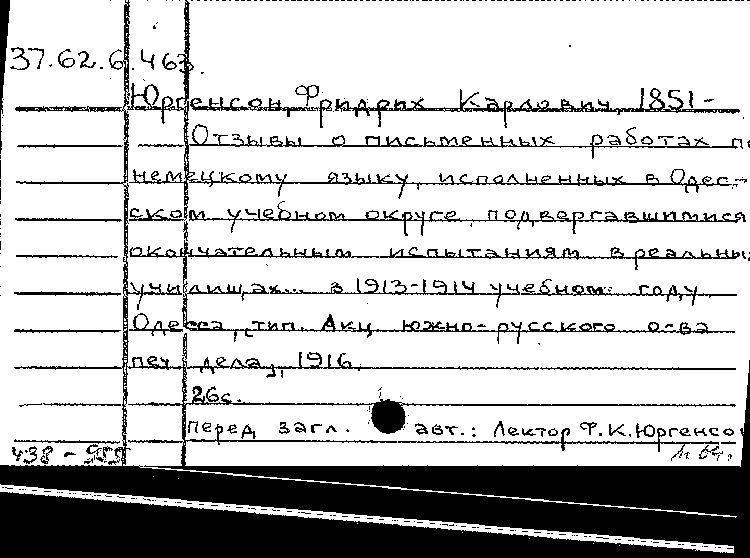 37.62.6.463.
Юргенсон, Фридрих Карлович, 1851-
Отзывы о письменных работах по
немецкому языку, исполненных в Одес-
ском учебном округе, подвергавшимися
окончательным испытаниям в реальных
училищах... в 1913-1914 учебном году.
Одесса, тип. Акц. южно-русского о-ва
печ. дела, 1916.
26с.
Перед загл. авт.: Лектор Ф.К.Юргенсо
438 - 955